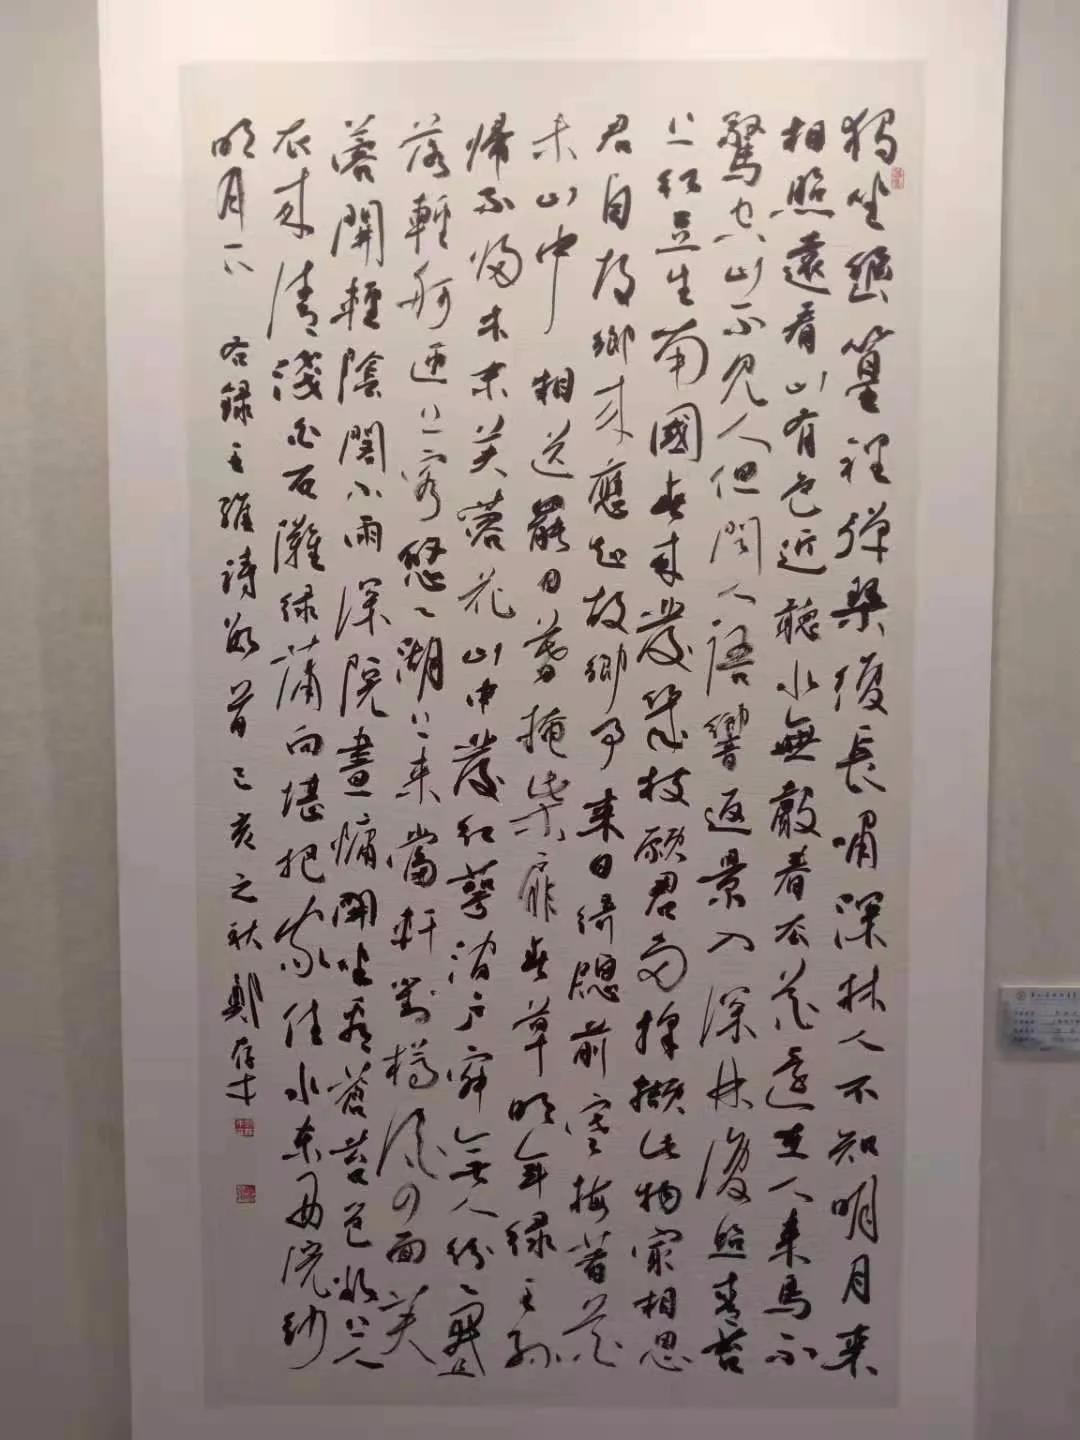 獨坐幽篁裡彈琴復長嘯深林人不知明月來
相照遠看山有色近聽水無聲春去花還在人來鳥不
驚空山不見人但聞人語響返景入深林復照青苔
上紅豆生南國春來發幾枝願君多採擷此物最相思
君自故鄉來應知故鄉事來日綺窗前寒梅著花
未山中相送罷日暮掩柴扉春草明年綠王孫
歸不歸木末芙蓉花山中發紅萼澗戶寂無人紛〻開且
落輕舸迎上客悠〻湖上來當軒對樽酒四面芙
蓉開輕陰閣小雨深院晝慵開坐看蒼苔色欲上人
衣來清淺白石灘綠蒲向堪把家住水東西浣紗
明月下 右錄王維詩數首 己亥之秋 鄭